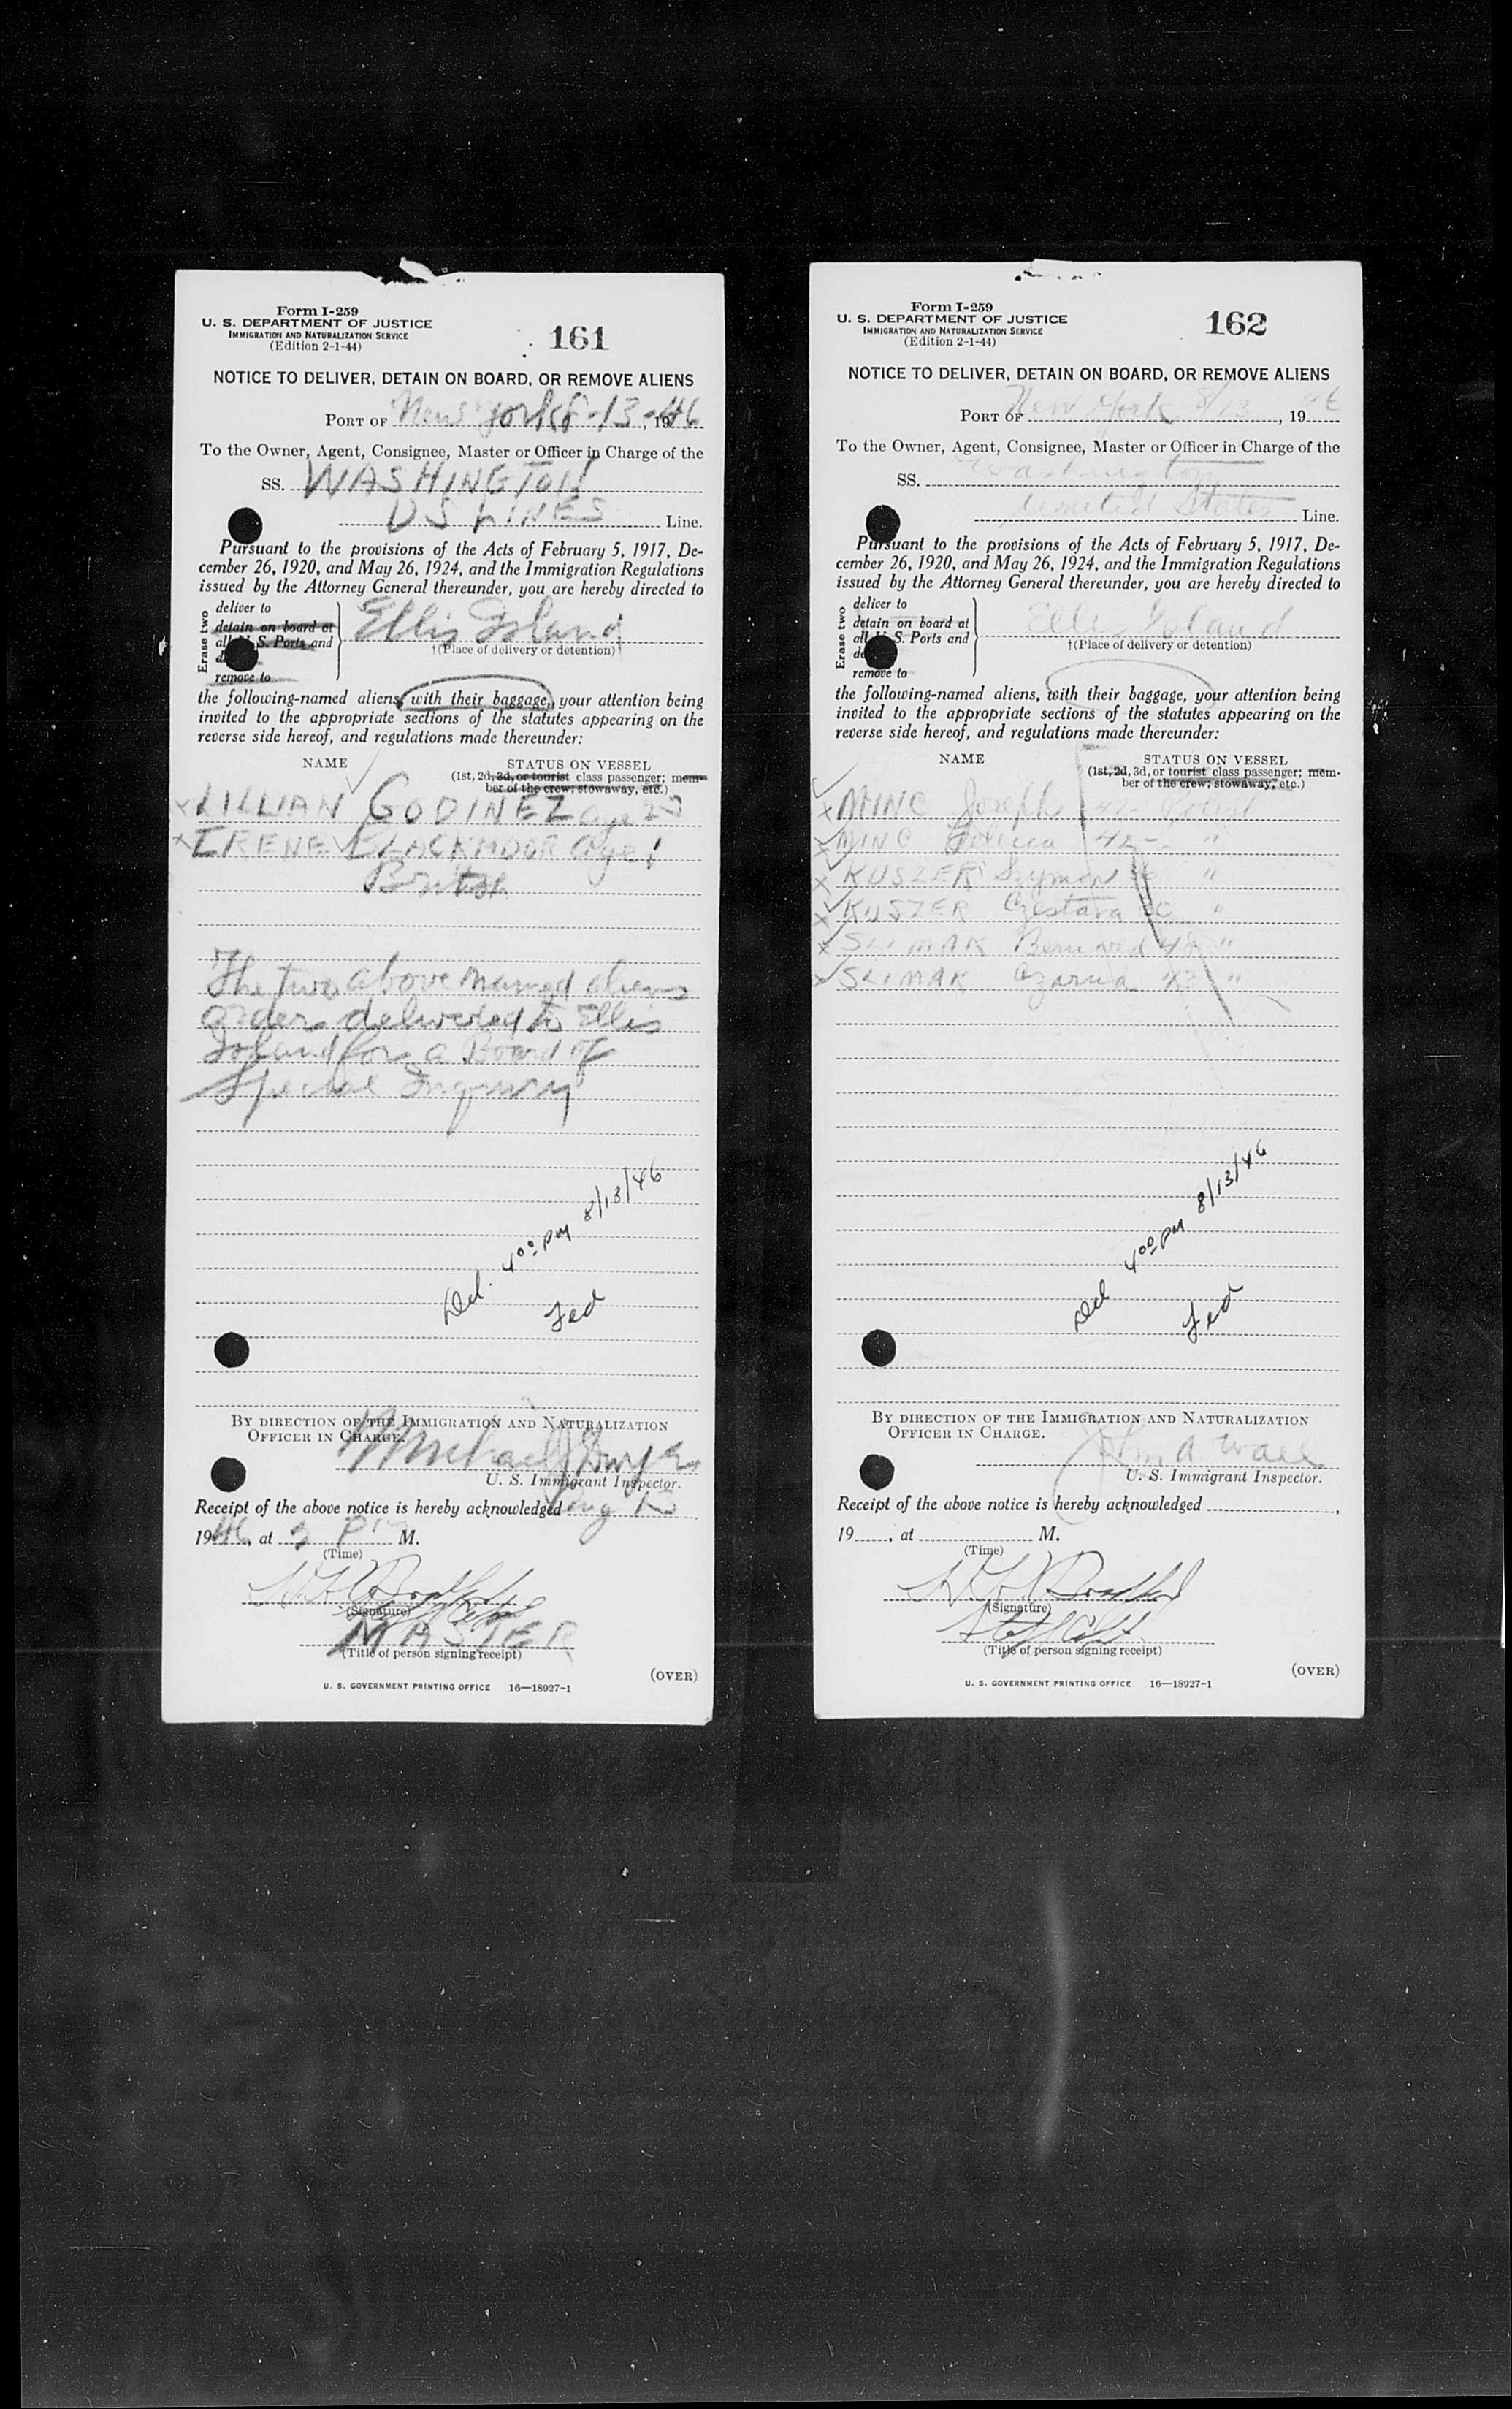 Form I-259
U. S. DEPARTMENT OF JUSTICE
IMMIGRATION AND NATURALIZATION SERVICE
(Edition 2-1-44)
161
NOTICE TO DELIVER, DETAIN ON BOARD, OR REMOVE ALIENS
PORT OF New York 8-13-, 1946
To the Owner, Agent, Consignee, Master or Officer in Charge of the
SS. WASHINGTON
US LINES Line.
Pursuant to the provisions of the Acts of February 5, 1917, De-
cember 26, 1920, and May 26, 1924, and the Immigration Regulations
issued by the Attorney General thereunder, you are hereby directed to
Erase two
deliver to
detain on board at
all U. S. Ports and
remove to
Ellis Island
†(Place of delivery or detention)
the following-named aliens, with their baggage, your attention being
invited to the appropriate sections of the statutes appearing on the
reverse side hereof, and regulations made thereunder:
NAME STATUS ON VESSEL
(1st, 2d, 3d, or tourist class passenger; mem-
ber of the crew; stowaway, etc.)
x LILLIAN GODINEZ age 23
x IRENE BLACKMOOR age 1
British
The two above named aliens
order delivered to Ellis
Island for a Board of
Special Inquiry
Del. 4:00 PM 8/13/46
BY DIRECTION OF THE IMMIGRATION AND NATURALIZATION
OFFICER IN CHARGE.
Michael J Dwyer
U. S. Immigrant Inspector.
Receipt of the above notice is hereby acknowledged Aug 13
1946, at M.
(Time)
(Signature)
MASTER
(Title of person signing receipt)
(OVER)
U. S. GOVERNMENT PRINTING OFFICE 16—18927-1
Form I-259
U. S. DEPARTMENT OF JUSTICE
IMMIGRATION AND NATURALIZATION SERVICE
(Edition 2-1-44)
162
NOTICE TO DELIVER, DETAIN ON BOARD, OR REMOVE ALIENS
PORT OF New York 8/13, 1946
To the Owner, Agent, Consignee, Master or Officer in Charge of the
SS. Washington
United States Line.
Pursuant to the provisions of the Acts of February 5, 1917, De-
cember 26, 1920, and May 26, 1924, and the Immigration Regulations
issued by the Attorney General thereunder, you are hereby directed to
Erase two
deliver to
detain on board at
all U. S. Ports and
remove to
Ellis Island
†(Place of delivery or detention)
the following-named aliens, with their baggage, your attention being
invited to the appropriate sections of the statutes appearing on the
reverse side hereof, and regulations made thereunder:
NAME STATUS ON VESSEL
(1st, 2d, 3d, or tourist class passenger; mem-
ber of the crew; stowaway, etc.)
x MINC Joseph
x MINC Felicia 42 "
x KUSZER Szymon "
x KUSZER "
x SLIMAK Bernard 48 "
x SLIMAK "
Del 4:00 PM 8/13/46
BY DIRECTION OF THE IMMIGRATION AND NATURALIZATION
OFFICER IN CHARGE.
John A Wall
U. S. Immigrant Inspector.
Receipt of the above notice is hereby acknowledged ,
19 , at M.
(Time)
(Signature)
(Title of person signing receipt)
(OVER)
U. S. GOVERNMENT PRINTING OFFICE 16—18927-1